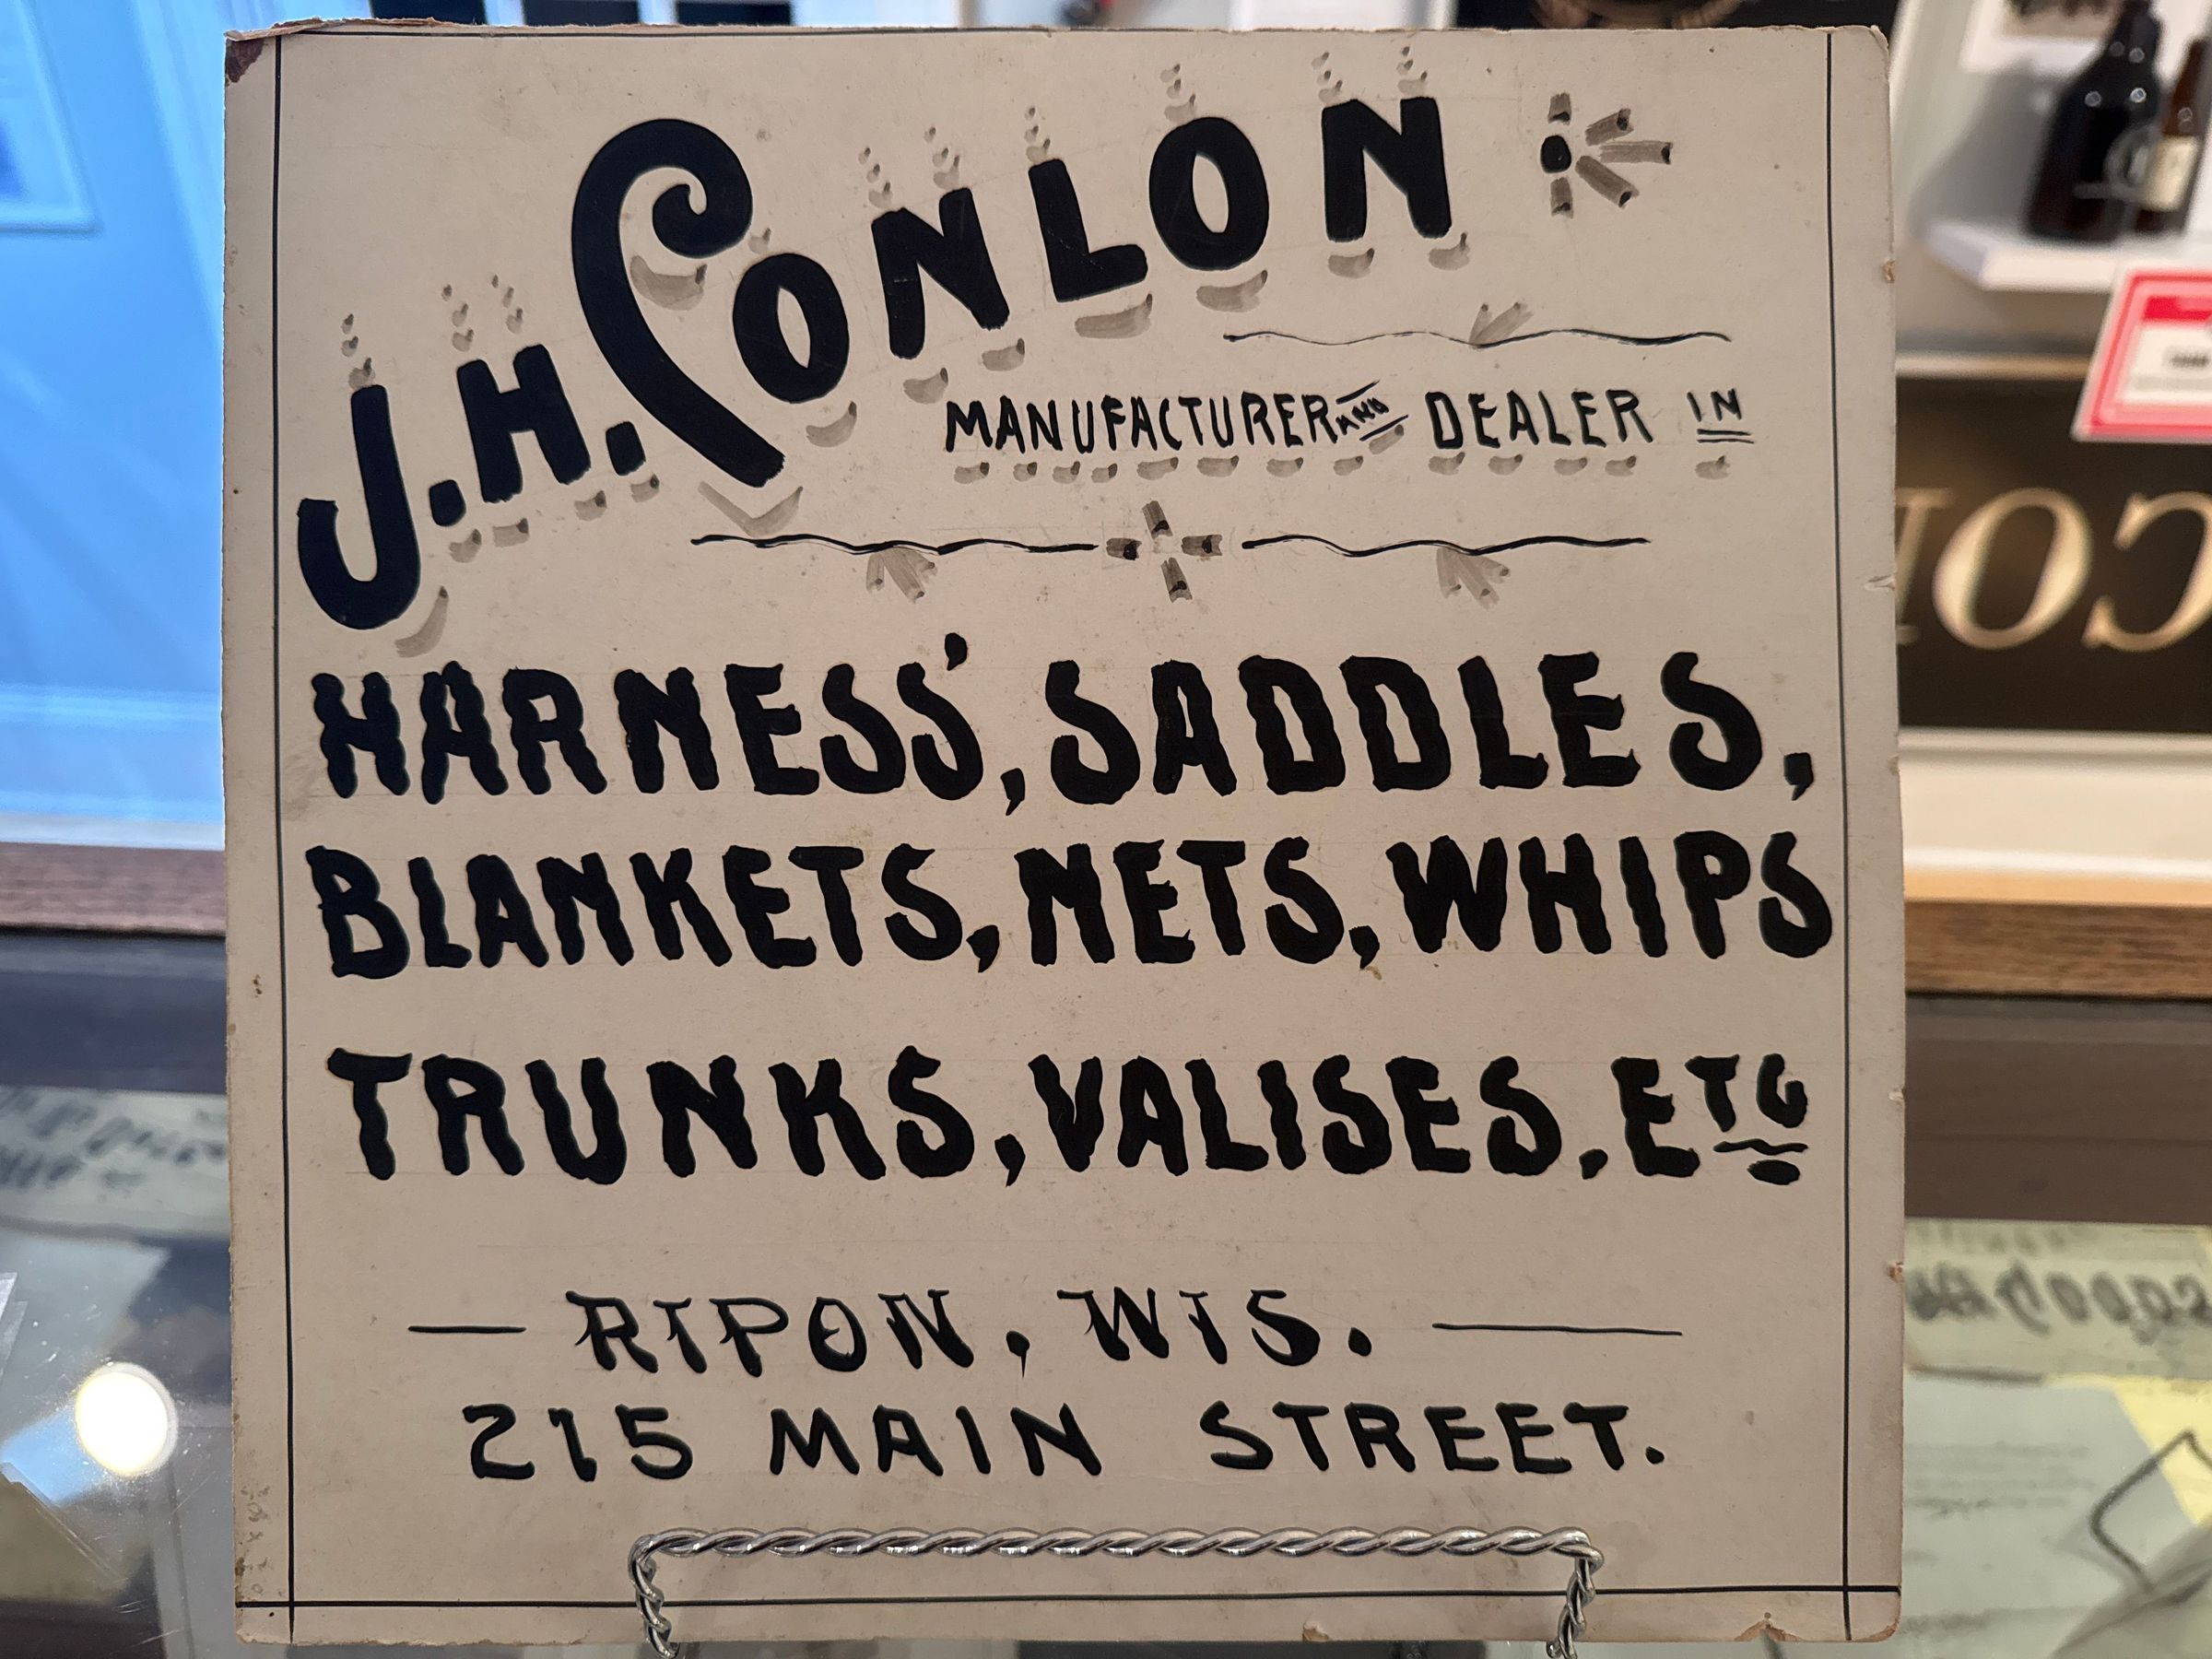 J.H. CONLON
MANUFACTURER AND DEALER IN
HARNESS', SADDLES,
BLANKETS, NETS, WHIPS
TRUNKS, VALISES, ETC
— RIPON, WIS. —
215 MAIN STREET.